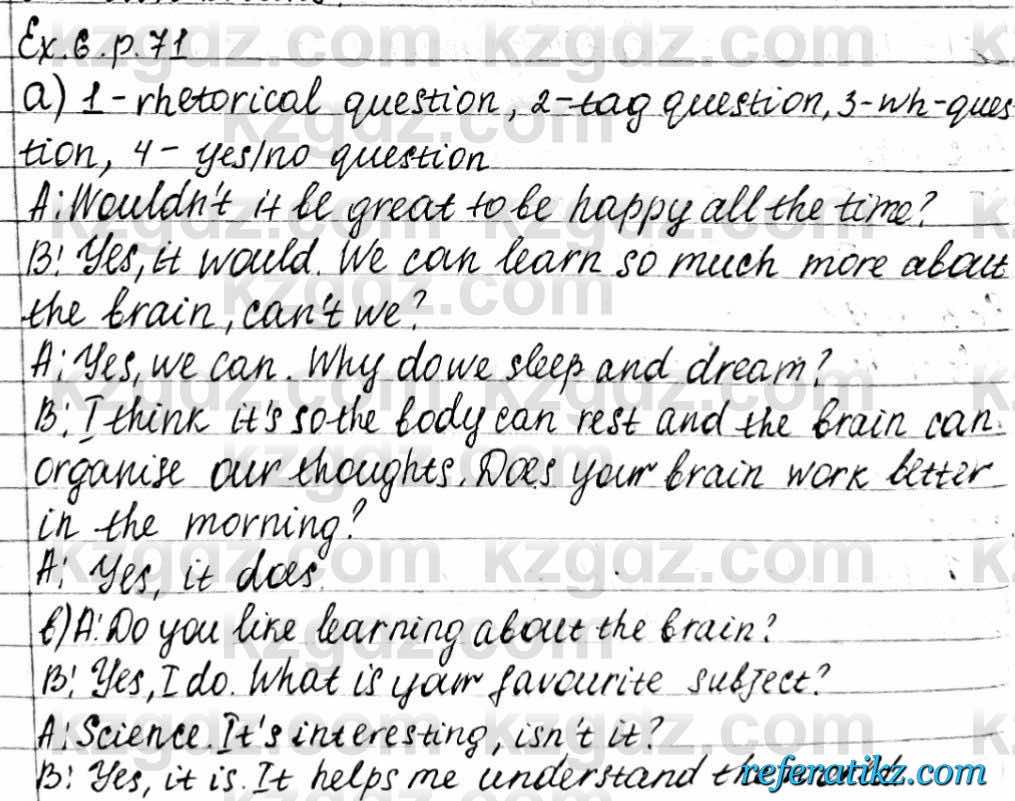 Ex. 6. p. 71
a) 1 - rhetorical question, 2 - tag question, 3 - wh-ques-
tion, 4 - yes/no question
A: Wouldn't it be great to be happy all the time?
B: Yes, it would. We can learn so much more about
the brain, can't we?
A: Yes, we can. Why do we sleep and dream?
B: I think it's so the body can rest and the brain can
organise our thoughts. Does your brain work better
in the morning?
A: Yes, it does.
b) A: Do you like learning about the brain?
B: Yes, I do. What is your favourite subject?
A: Science. It's interesting, isn't it?
B: Yes, it is. It helps me understand the
referatikz.com
kzgdz.com